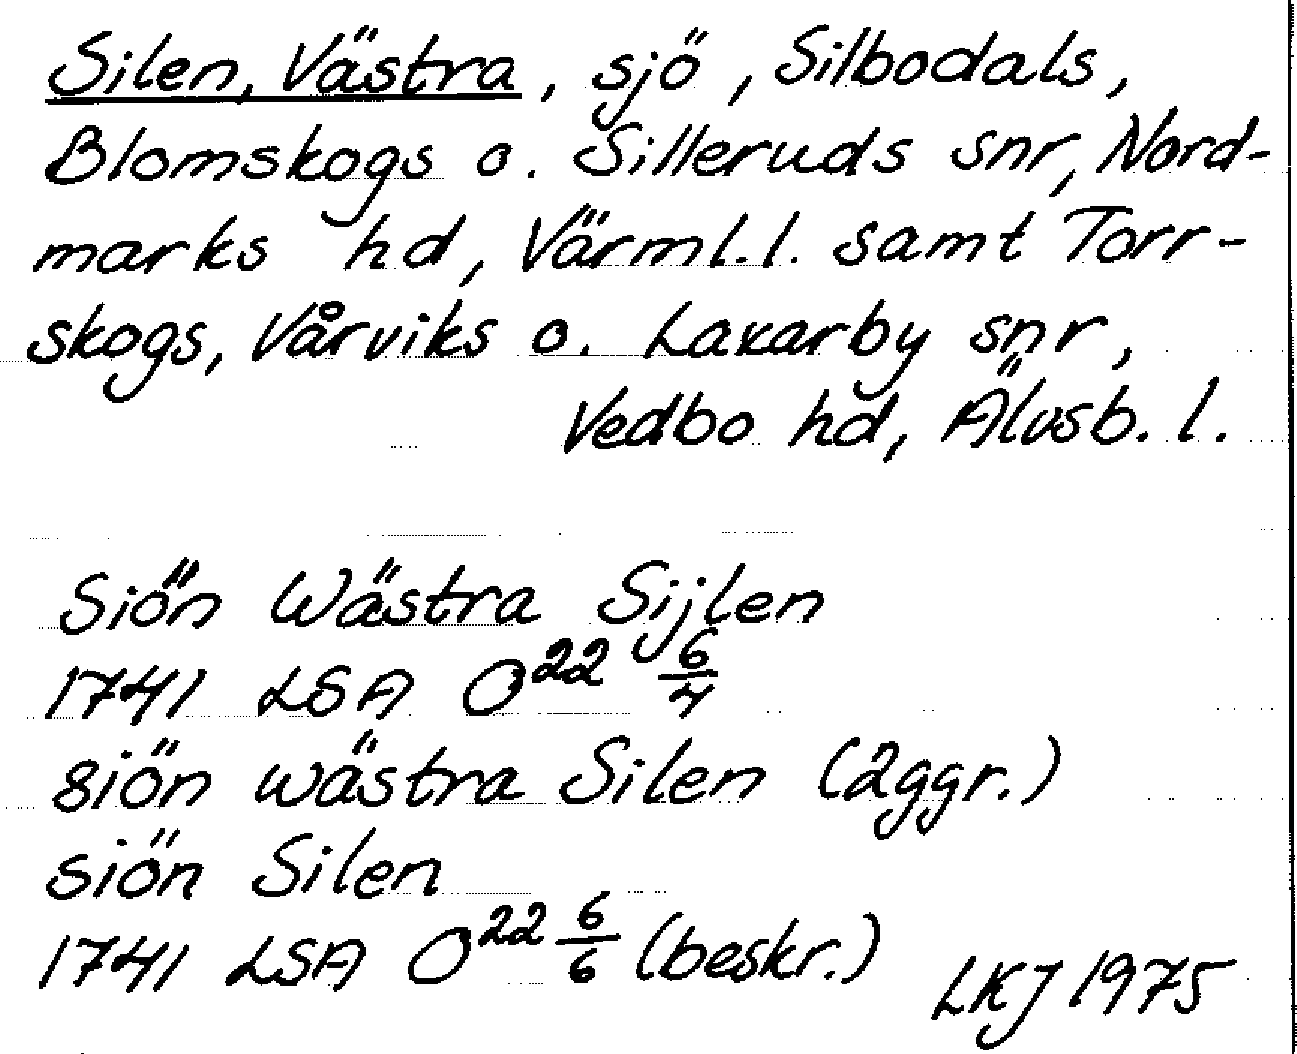 Silen, Västra, sjö, Silbodals,
Blomskogs o. Silleruds snr, Nord-
marks hd, Värml. l. samt Torr-
skogs, Vårviks o. Laxarby snr,
Vedbo hd, Älvsb. l.
Siön Wästra Sijlen
1741 LSA O²² 6/4
siön wästra Silen (2ggr.)
siön Silen
1741 LSA O²² 6/6 (beskr.)
LKJ 1975